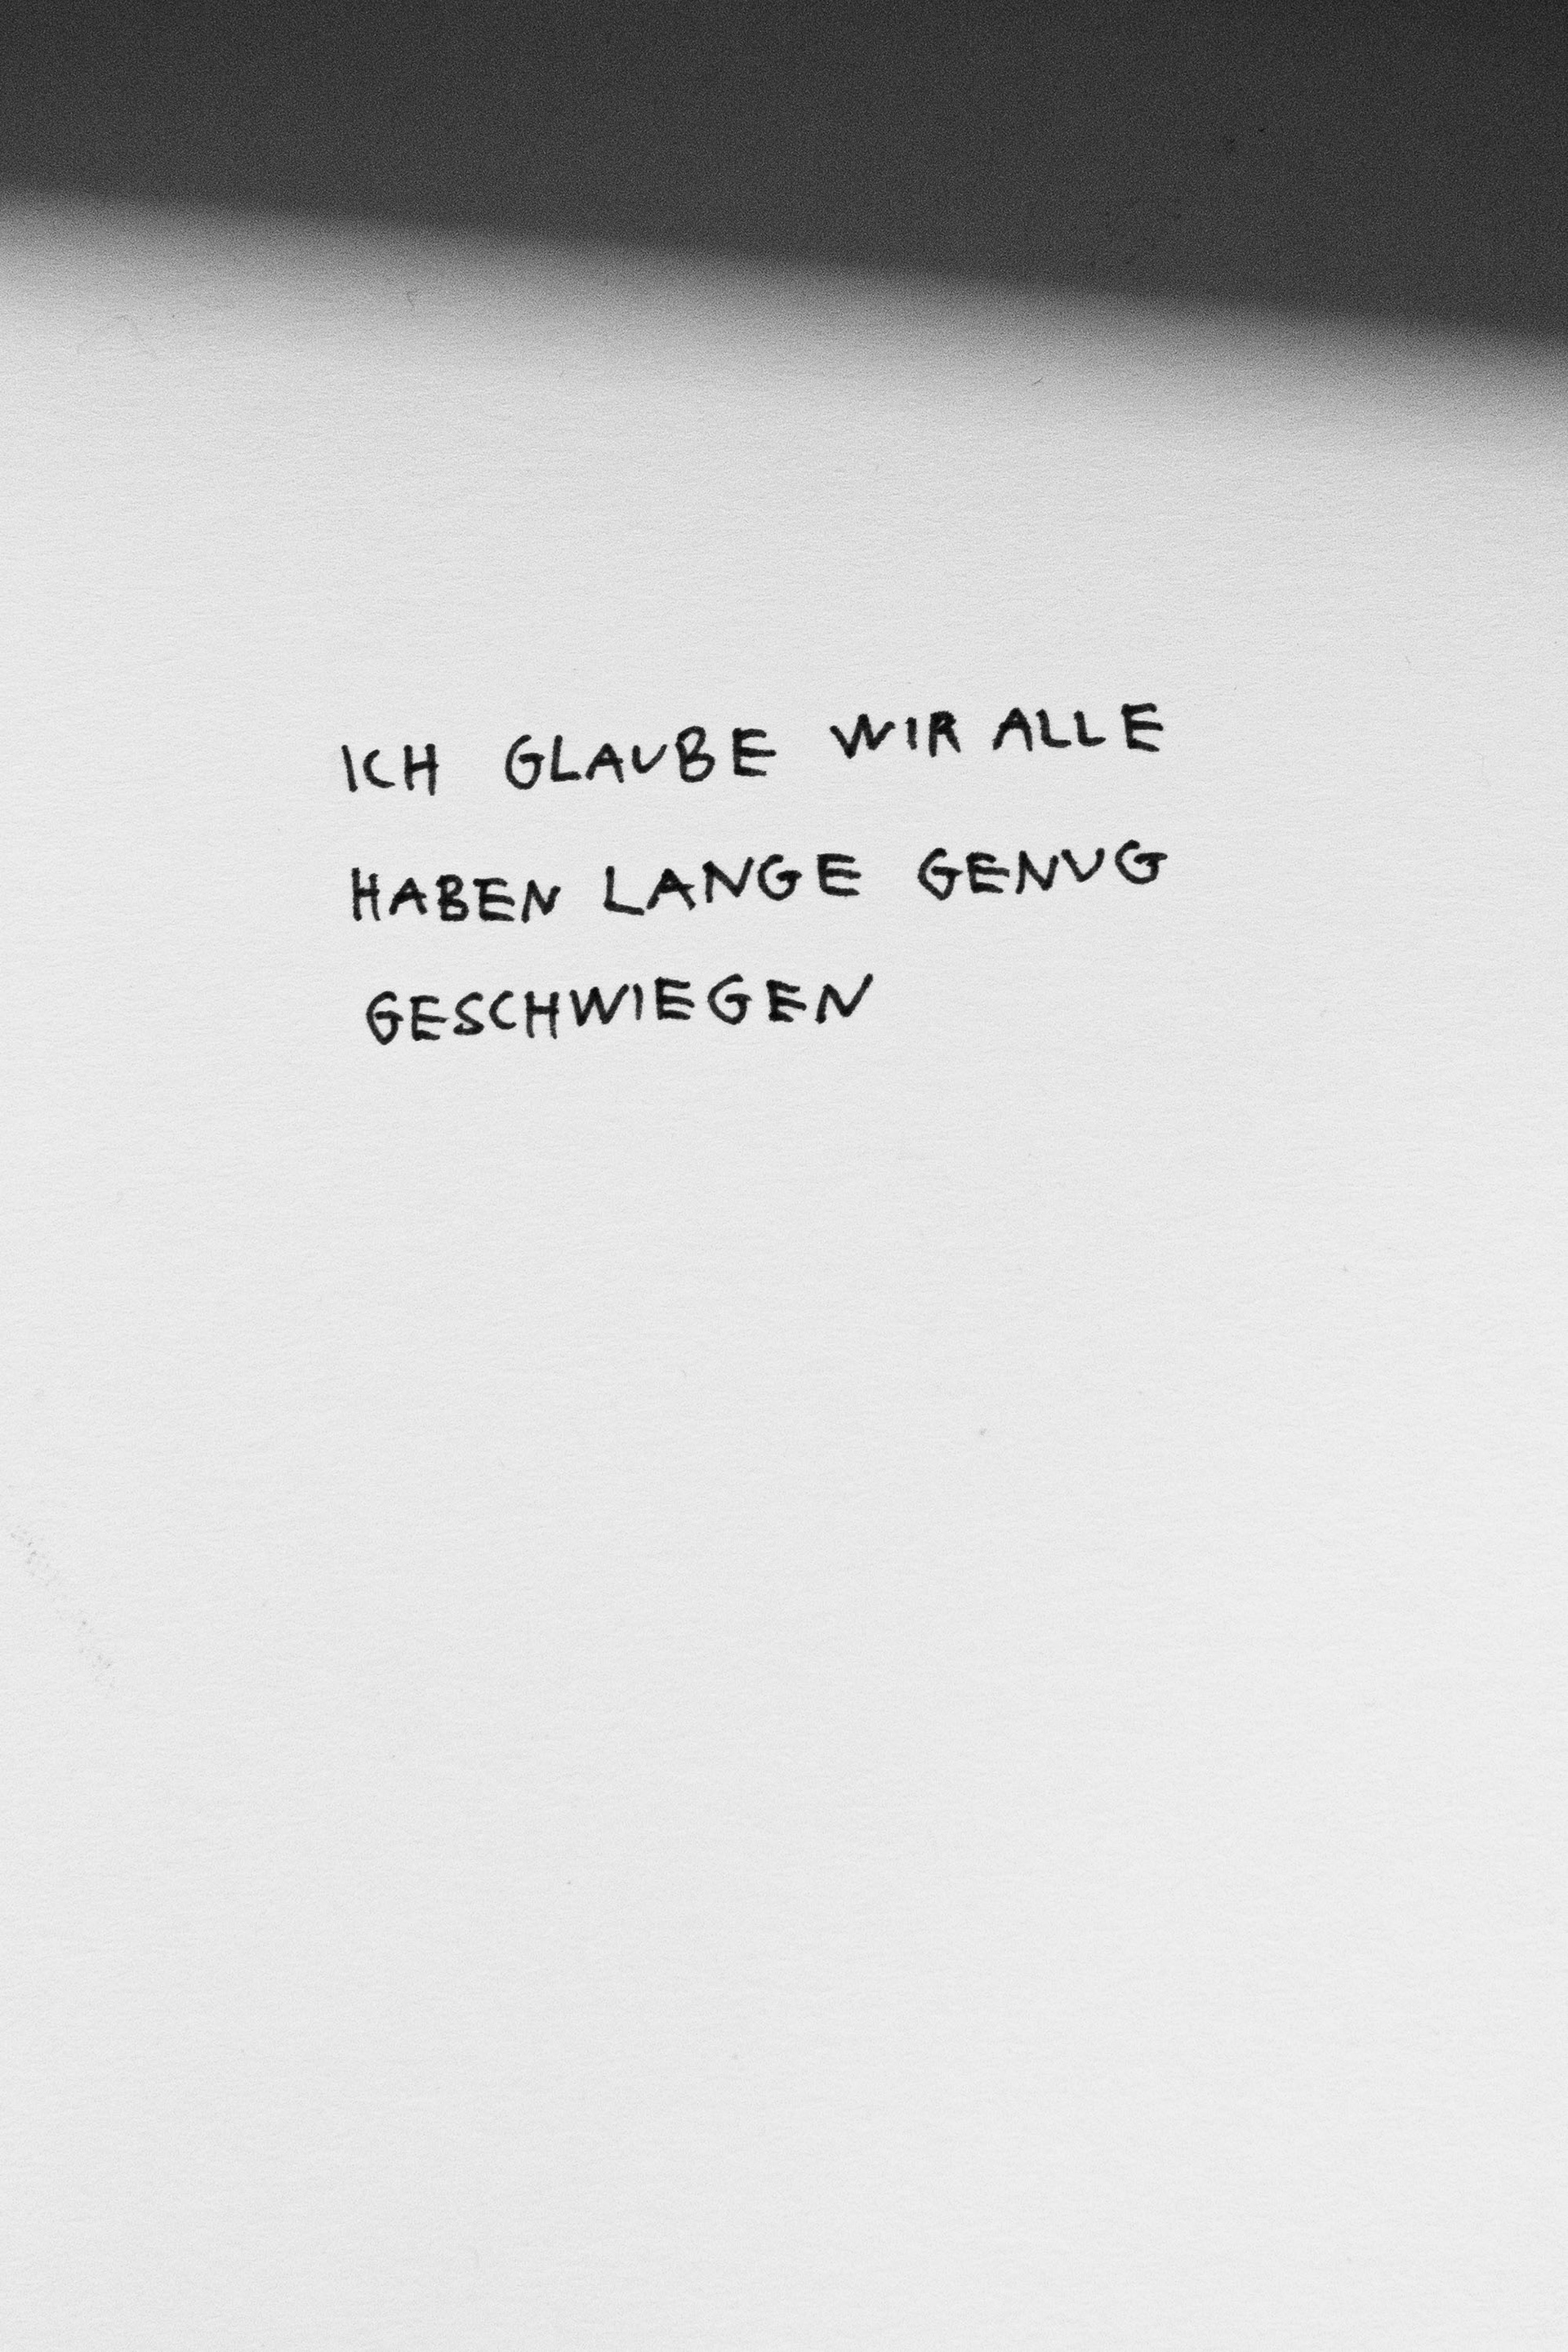 ICH GLAUBE WIR ALLE
HABEN LANGE GENUG
GESCHWIEGEN